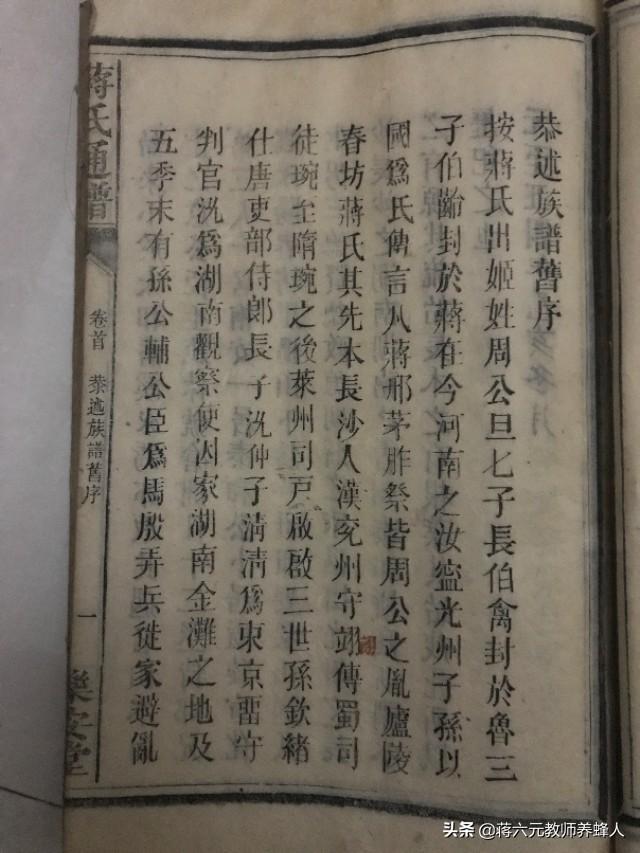 恭述族譜舊序
按蔣氏出姬姓周公旦七子長伯禽封於魯三
子伯齡封於蔣在今河南之汝寧光州子孫以
國爲氏傳言凡蔣邢茅胙祭皆周公之胤廬陵
春坊蔣氏其先本長沙人漢兖州守翊傳蜀司
徒琬至隋琬之後萊州司戸啟啟三世孫欽緒
仕唐吏部侍郎長子洗仲子清清爲東京畱守
判官洗爲湖南觀察使因家湖南金灘之地及
五季末有孫公輔公臣爲馬殷弄兵徙家避亂
蔣氏通譜
卷首 恭述族譜舊序
一
樂安堂
头条 @蒋六元教师养蜂人